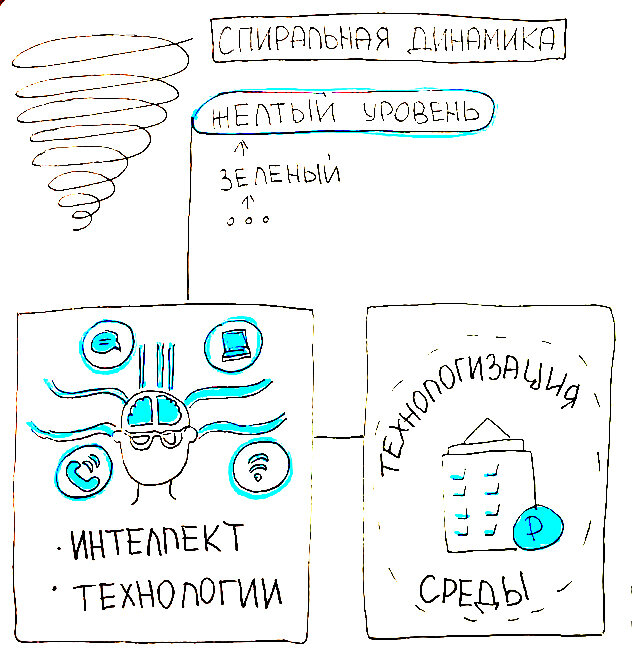 СПИРАЛЬНАЯ ДИНАМИКА
ЖЕЛТЫЙ УРОВЕНЬ
ЗЕЛЕНЫЙ
...
ТЕХНОЛОГИЗАЦИЯ
₽
СРЕДЫ
· ИНТЕЛЛЕКТ
· ТЕХНОЛОГИИ